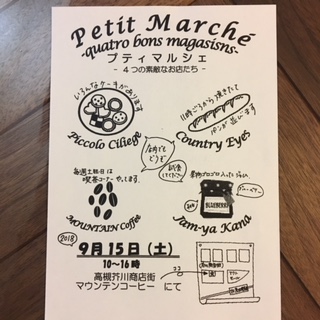 Petit Marché
-quatro bons magasisns-
プティマルシェ
- 4つの素敵なお店たち -
いろんなケーキがあります
11時ごろから焼きたて
パンが並びます
Piccolo Ciliege
Country Eyes
なんでも
どうぞ
試食
してください
毎週土曜日は
喫茶コーナーやってます。
果肉ゴロゴロ入った
BLUEBERRY
MOUNTAIN Coffee
Jam-ya Kana
2018
9月15日(土)
10~16時
高槻芥川商店街
マウンテンコーヒー にて
ココ